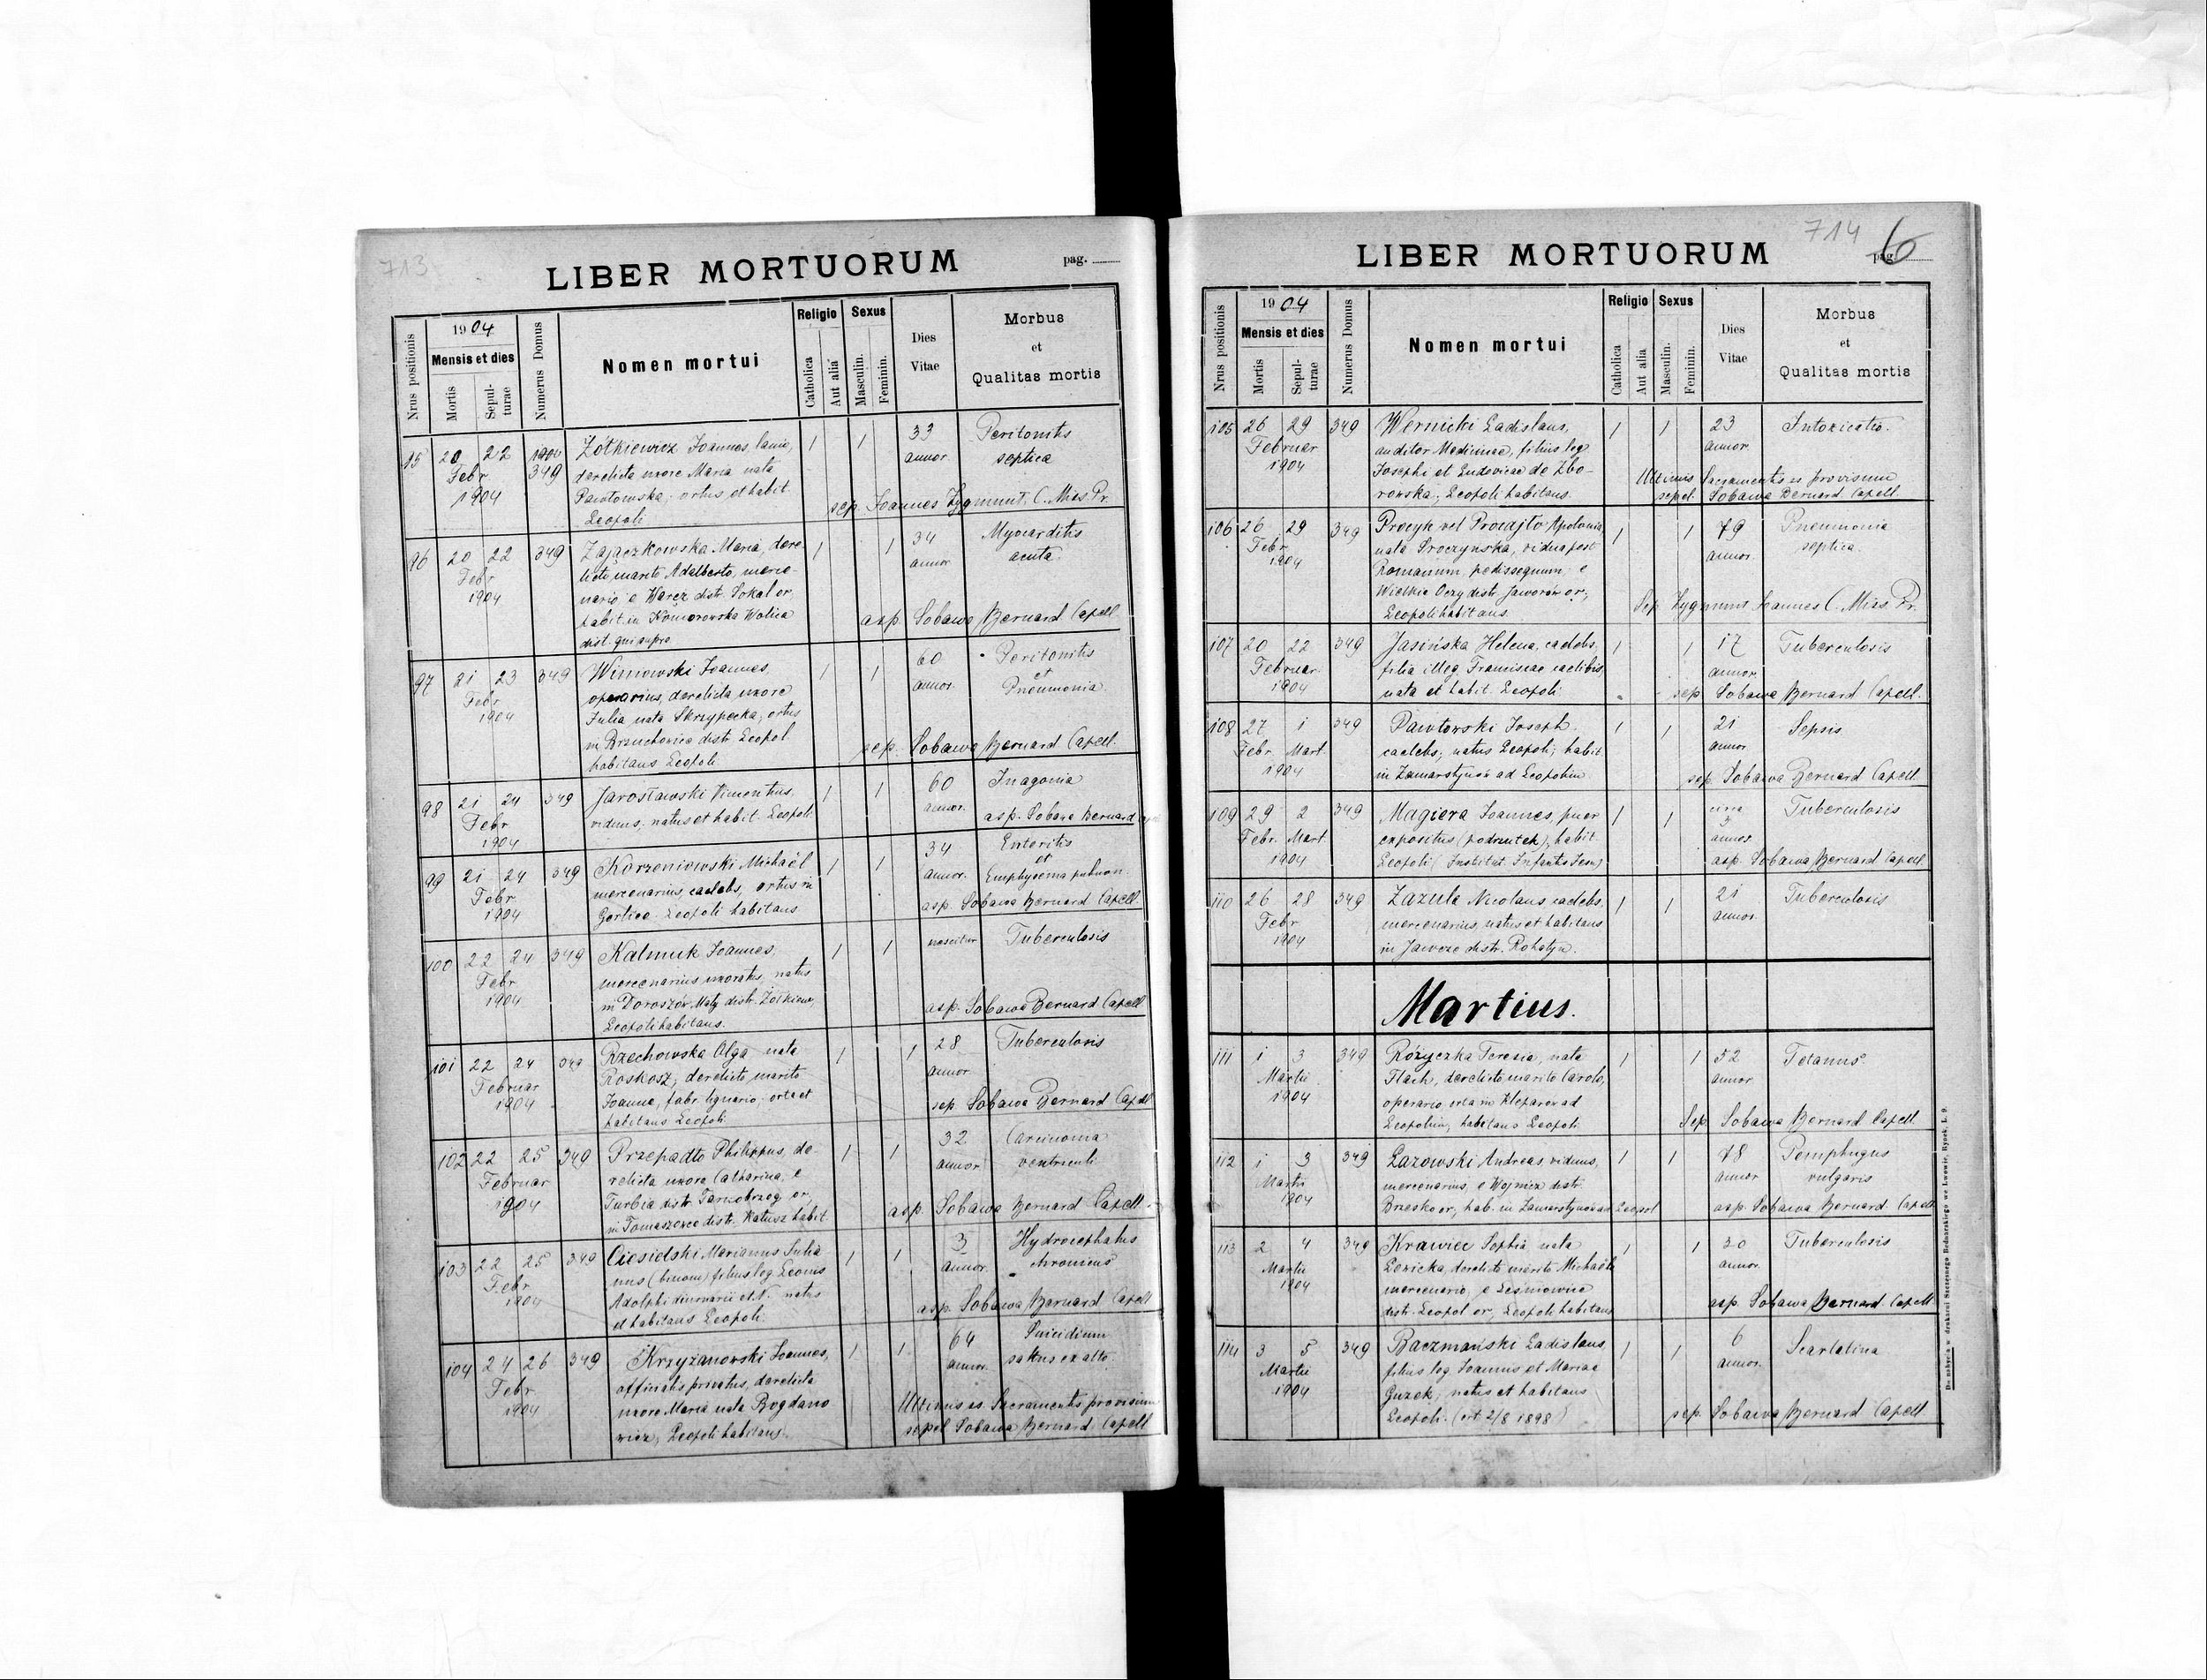 713
LIBER MORTUORUM
pag.
Nrus positionis
1904
Mensis et dies
Mortis
Sepulturae
Numerus Domus
Nomen mortui
Religio
Catholica
Aut alia
Sexus
Masculin.
Feminin.
Dies Vitae
Morbus et Qualitas mortis
95 20 22 Febr 1904 349
Żółkiewicz Joannes, lanio,
derelicta uxore Maria nata
Pawłowska, ortus et habit
Leopoli
1 1 33 annor
Peritonitis
septica
sep. Joannes Zygmunt, C. Mis. Pr.
96 20 22 Febr 1904 349
Zajączkowska Maria, dere-
licto marito Adalberto, merce-
nario e Waręż distr. Sokal or
habit. in Komorowska Wolica
dist. qui supra
1 1 34 annor
Myocarditis
acuta
asp. Sobawa Bernard Capell
97 21 23 Febr 1904 349
Winiowski Joannes,
operarius, derelicta uxore
Julia nata Skrzypecka, ortus
in Brzuchowice distr. Leopol
habitans Leopoli
1 1 60 annor.
Peritonitis
et
Pneumonia
sep. Sobawa Bernard Capell.
98 21 24 Febr 1904 349
Jarosławski Vincentius,
viduus, natus et habit. Leopoli
1 1 60 annor.
Inagonia
asp. Sobawa Bernard
99 21 24 Febr 1904 349
Korzeniowski Michaël
mercenarius, caelebs, ortus in
Gorlice Leopoli habitans
1 1 34 annor.
Enteritis
et
Emphysema pulmon.
asp. Sobawa Bernard Capell.
100 22 24 Febr 1904 349
Kalmuk Joannes,
mercenarius uxoratus, natus
in Doroszów Mały distr. Żółkiew,
Leopoli habitans.
1 1 nescitur
Tuberculosis
asp. Sobawa Bernard Capell
101 22 24 Februar 1904 349
Rzechowska Olga nata
Roskosz, derelicto marito
Joanne, fabr. lignario, orta et
habitans Leopoli
1 1 28 annor
Tuberculosis
sep. Sobawa Bernard Capell
102 22 25 Februar 1904 349
Przepadło Philippus, de-
relicta uxore Catharina, e
Turbia distr. Tarnobrzeg or,
in Tomaszowce distr. Kałusz habit.
1 1 32 annor
Carcinoma
ventriculi
asp. Sobawa Bernard Capell.
103 22 25 Febr 1904 349
Ciesielski Marianus Julia
nus (binom) filius leg. Leonis
Adolphi diurnarii et N. natus
et habitans Leopoli.
1 1 3 annor.
Hydrocephalus
chronicus
asp. Sobawa Bernard Capell
104 24 26 Febr 1904 349
Krzyżanowski Joannes,
officialis privatus, derelicta
uxore Maria nata Bogdano
wicz, Leopoli habitans.
1 1 64 annor.
Suicidium
saltus ex alto
Ultimis ss. Sacramentis provisum
sepel Sobawa Bernard Capell
714
6
LIBER MORTUORUM
pag.
Nrus positionis
1904
Mensis et dies
Mortis
Sepulturae
Numerus Domus
Nomen mortui
Religio
Catholica
Aut alia
Sexus
Masculin.
Feminin.
Dies Vitae
Morbus et Qualitas mortis
105 26 29 Februar 1904 349
Wernicki Ladislaus,
auditor Medicinae, filius leg
Josephi et Ludovicae de Zbo-
rowska, Leopoli habitans.
1 1 23 annor
Intoxicatio.
Ultimis Sacramentis ss provisum
sepel. Sobawa Bernard Capell.
106 26 29 Febr. 1904 349
Procyk vel Procajło Apolonia
nata Sroczynska, vidua post
Romanum, pedissequum, e
Wielkie Oczy distr. Jaworów or,
Leopoli habitans.
1 1 79 annor.
Pneumonia
septica.
Sep. Zygmunt Joannes C. Mis. Pr.
107 20 22 Februar 1904 349
Jasińska Helena, caelebs,
filia illeg. Franciscae caelibis,
nata et habit. Leopoli
1 1 17 annor
Tuberculosis
sep Sobawa Bernard Capell.
108 27 1 Febr. Mart. 1904 349
Pawłowski Joseph
caelebs, natus Leopoli, habit
in Zamarstynów ad Leopolim
1 1 21 annor
Sepsis
sep. Sobawa Bernard Capell.
109 29 2 Febr. Mart. 1904 349
Magiera Joannes, puer
expositus (podrzutek), habit
Leopoli (Institut. Infantis Jesu)
1 1 circa 3 annor
Tuberculosis
asp. Sobawa Bernard Capell.
110 26 28 Febr 1904 349
Zazula Nicolaus caelebs,
mercenarius, natus et habitans
in Jawcze distr. Rohatyn.
1 1 21 annor.
Tuberculosis
Martius.
111 1 3 Martii 1904 349
Różyczka Teresia, nata
Flach, derelicto marito Carolo,
operario, orta in Kleparow ad
Leopolim, habitans Leopoli
1 1 52 annor
Tetanus
Sep. Sobawa Bernard Capell
112 1 3 Martii 1904 349
Łazowski Andreas viduus,
mercenarius, e Wojnicz distr.
Brzesko or, hab. in Zamarstynów ad Leopol
1 1 78 annor
Pemphygus
vulgaris
asp. Sobawa Bernard. Capell
113 2 4 Martii 1904 349
Krawiec Sophia nata
Łezicka, derelicto marito Michaële
mercenario, e Lesniowice
distr. Leopol or, Leopoli habitans
1 1 30 annor.
Tuberculosis
asp. Sobawa Bernard. Capell.
114 3 5 Martii 1904 349
Baczmański Ladislaus,
filius leg Joannis et Mariae
Guzek, natus et habitans
Leopoli. (ort 2/8 1898)
1 1 6 annor.
Scarlatina
sep. Sobawa Bernard Capell
Do nabycia w drukarni Szczęsnego Bednarskiego we Lwowie, Rynek, L. 9.